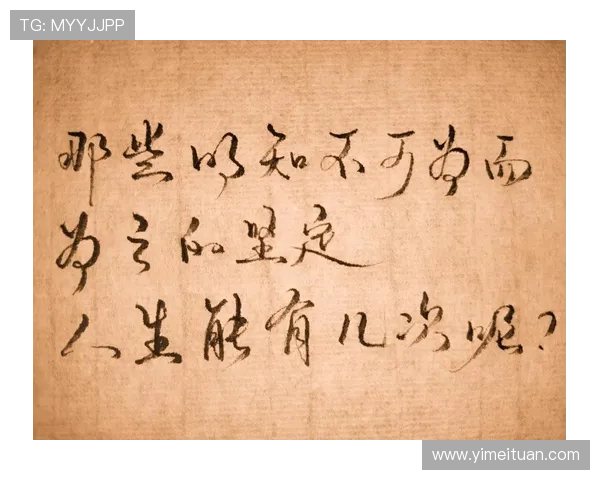 TG: MYYJJPP
那些明知不可为而
为之的坚定
人生能有几次呢?
www.yimeituan.com